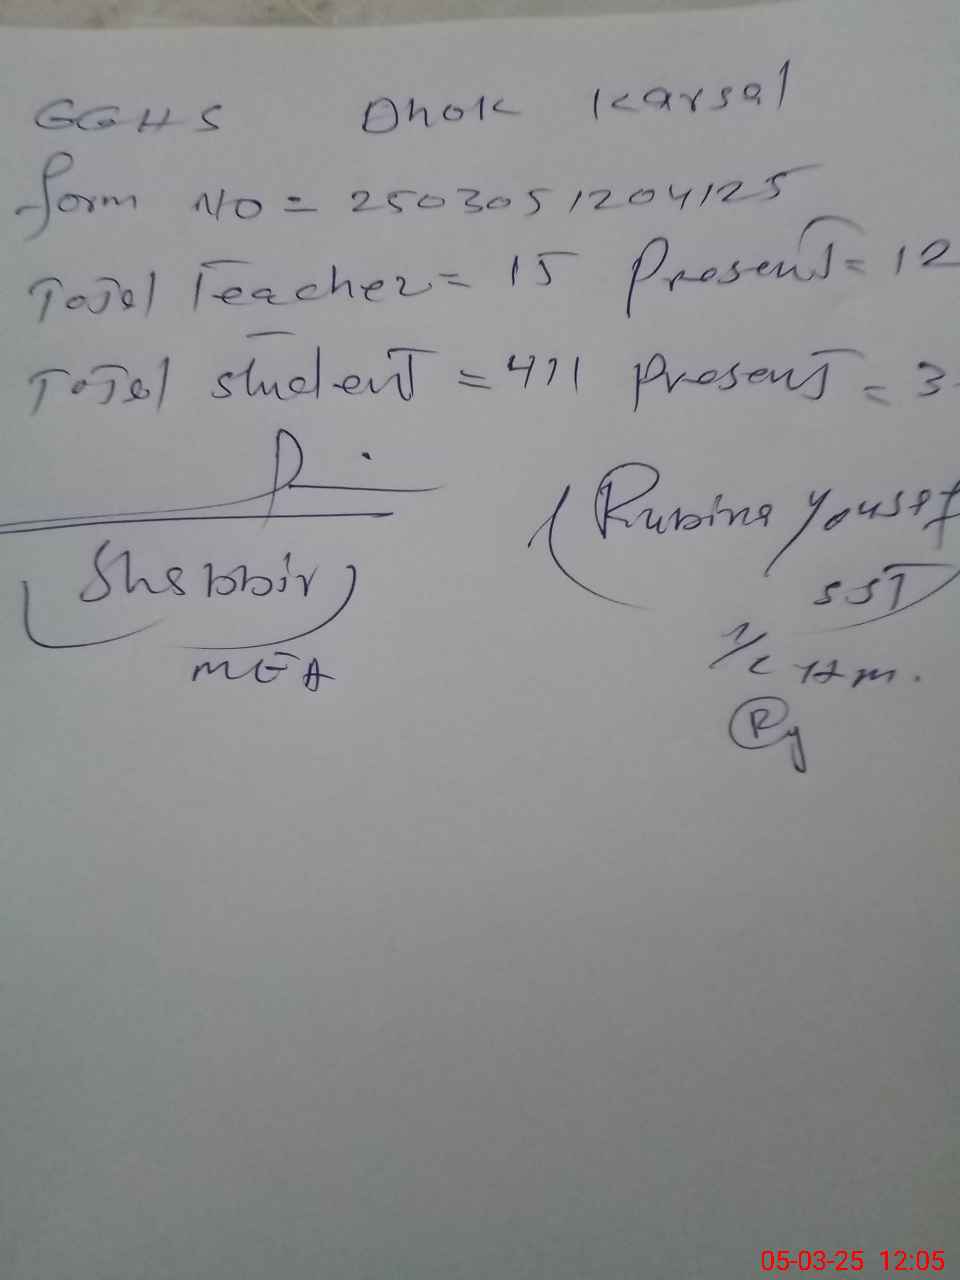 GGHS Dhok Karsal
form NO = 2503051204125
Total Teacher = 15 Present = 12
Total student = 411 Present = 3
(Shabbir)
MEA
(Rubina Yousaf
SST)
I/C H m.
Ry
05-03-25 12:05